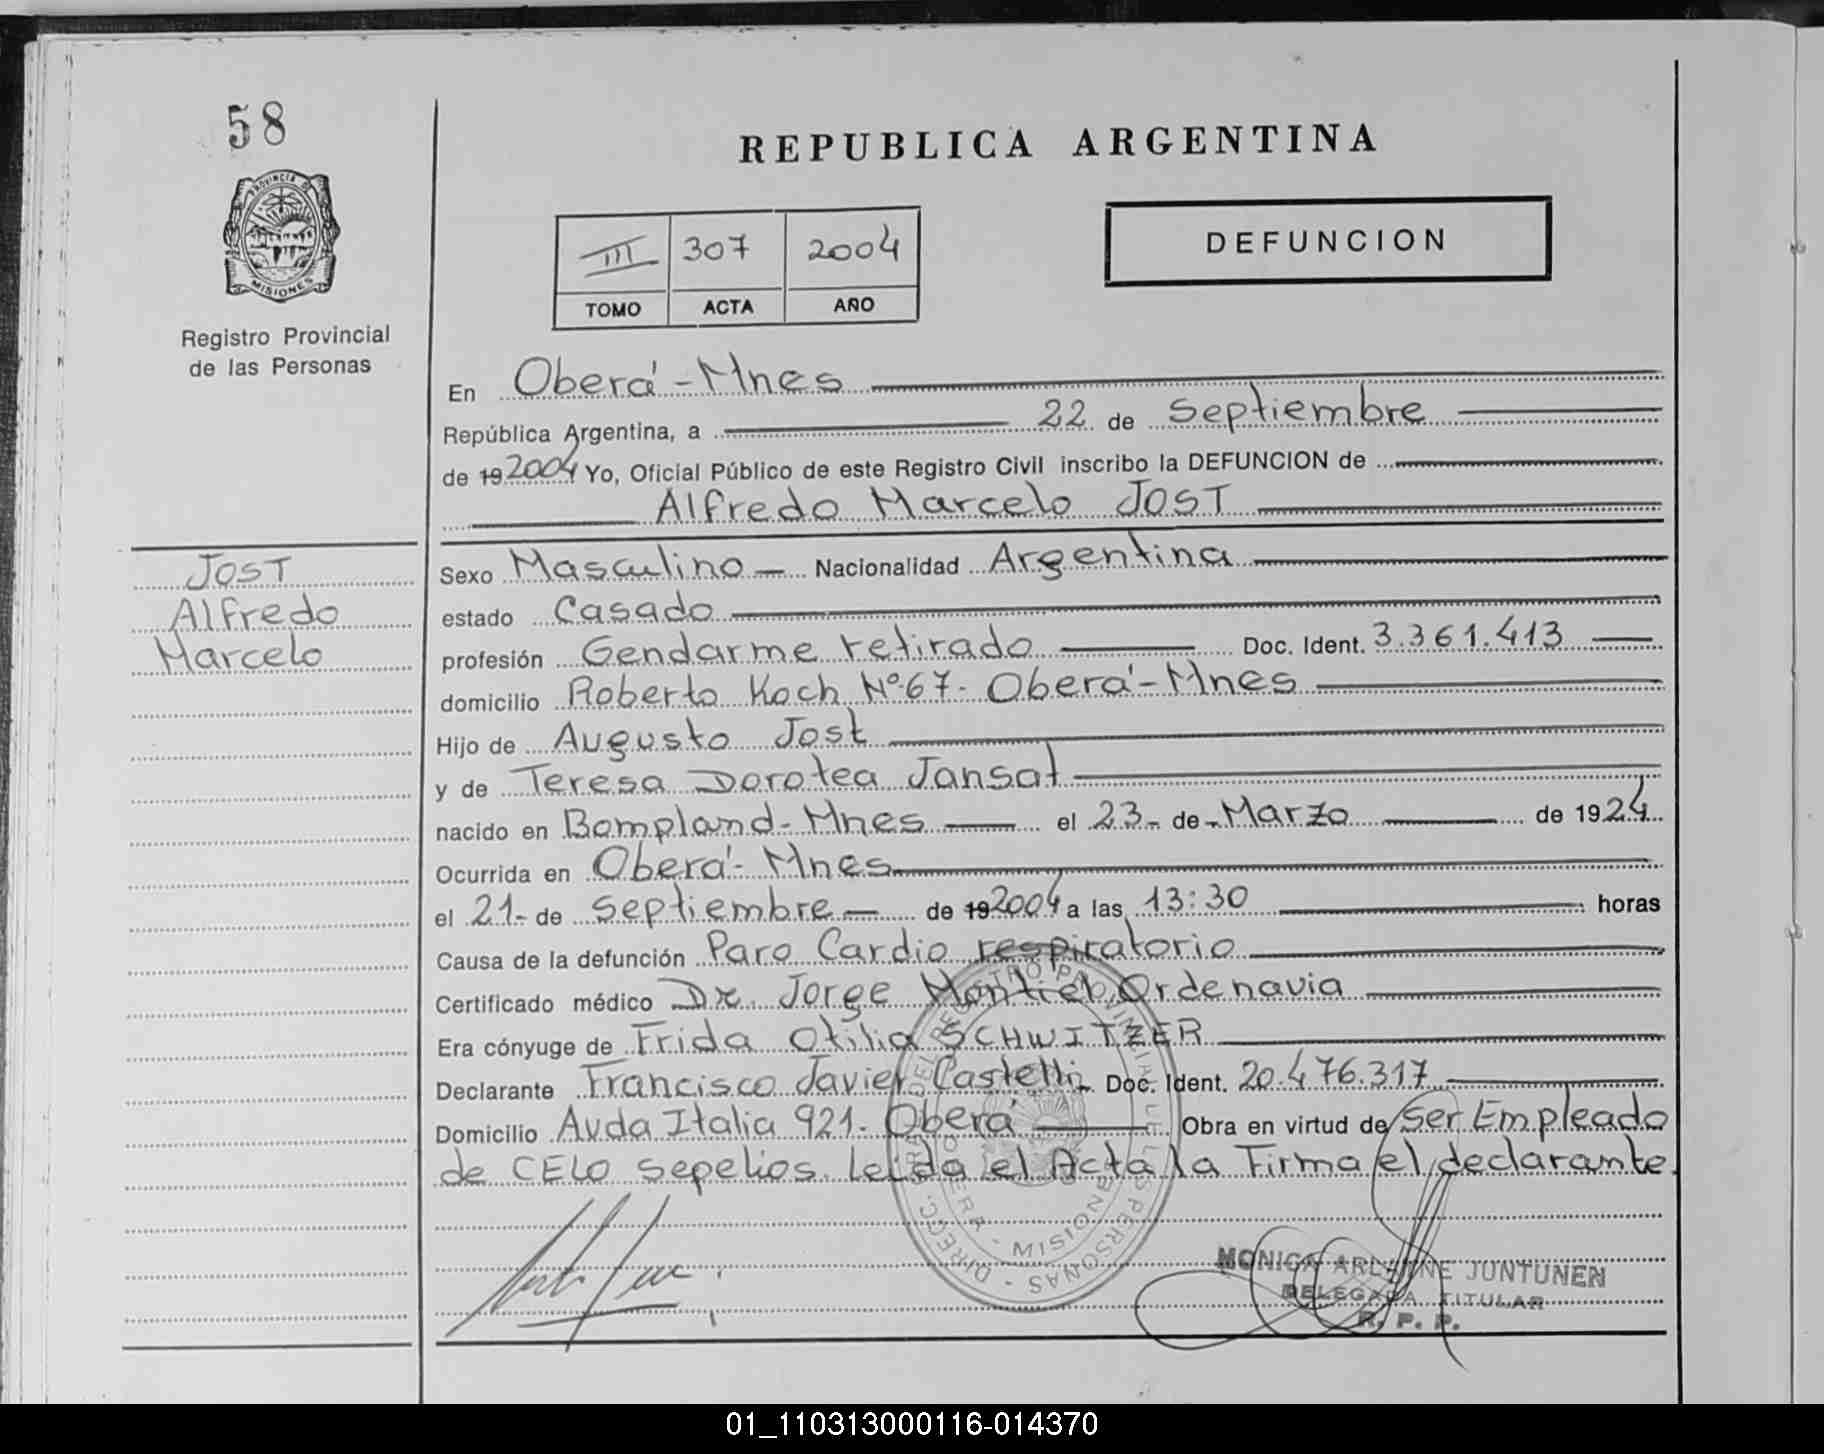 58
PROVINCIA DE
MISIONES
Registro Provincial
de las Personas
REPUBLICA ARGENTINA
III 307 2004
TOMO ACTA AÑO
DEFUNCION
En Oberá - Mnes
República Argentina, a 22 de Septiembre
de 19 2004 Yo, Oficial Público de este Registro Civil inscribo la DEFUNCION de
Alfredo Marcelo JOST
JOST
Alfredo
Marcelo
Sexo Masculino — Nacionalidad Argentina
estado Casado
profesión Gendarme retirado Doc. Ident. 3.361.413
domicilio Roberto Koch Nº 67 - Oberá - Mnes
Hijo de Augusto Jost
y de Teresa Dorotea Jansat
nacido en Bompland - Mnes el 23 - de - Marzo de 1924
Ocurrida en Oberá - Mnes
el 21 - de Septiembre — de 19 2004 a las 13:30 horas
Causa de la defunción Paro Cardio respiratorio
Certificado médico Dr. Jorge Montiel Ordenavia
Era cónyuge de Frida Otilia SCHWITZER
Declarante Francisco Javier Castelli Doc. Ident. 20.476.317
Domicilio Avda Italia 921 - Oberá Obra en virtud de Ser Empleado
de CELO Sepelios. Leída el Acta la Firma el declarante.
MONICA ARLENNE JUNTUNEN
DELEGADA TITULAR
R. P. P.
01_110313000116-014370